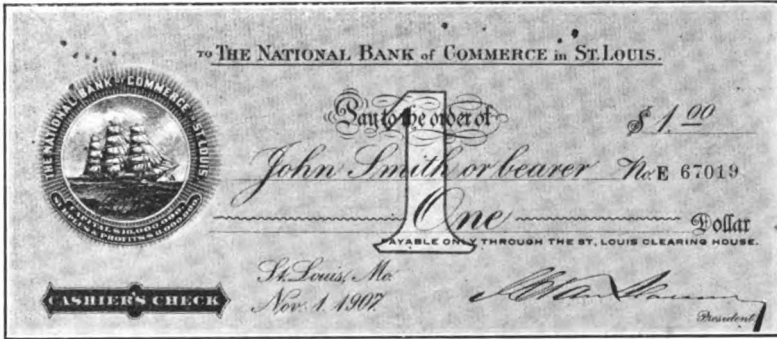 TO THE NATIONAL BANK of COMMERCE in ST. LOUIS.
THE NATIONAL BANK OF COMMERCE ST. LOUIS
CAPITAL $10,000,000
Pay to the order of
1
$ 1.00
John Smith or bearer No. E 67019
One Dollar
PAYABLE ONLY THROUGH THE ST. LOUIS CLEARING HOUSE.
St. Louis, Mo.
Nov. 1. 1907.
CASHIER'S CHECK
President